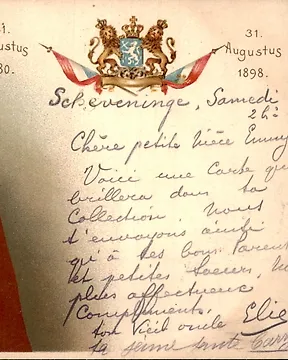 31. Augustus 1898.
Scheveninge, Samedi
2 h½
Chère petite Nièce Emmy
Voici une carte qui
brillera dans ta
Collection. Nous
t'envoyons ainsi
qu'à tes bons Parents
et petites Soeurs, nos
plus affectueux
Compliments.
ton vieil oncle Elie
ta
tante